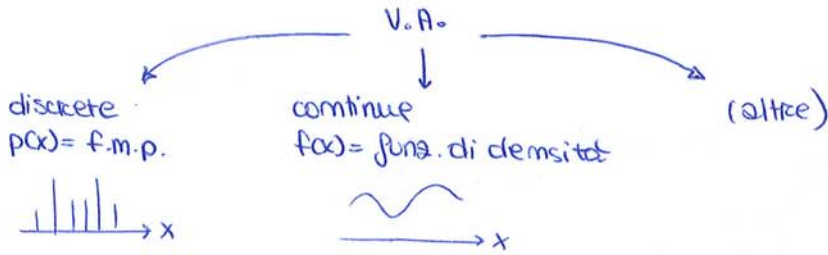 V.A.
discrete
p(x)= f.m.p.
continue
f(x)= funz. di densità
(altre)
x
x